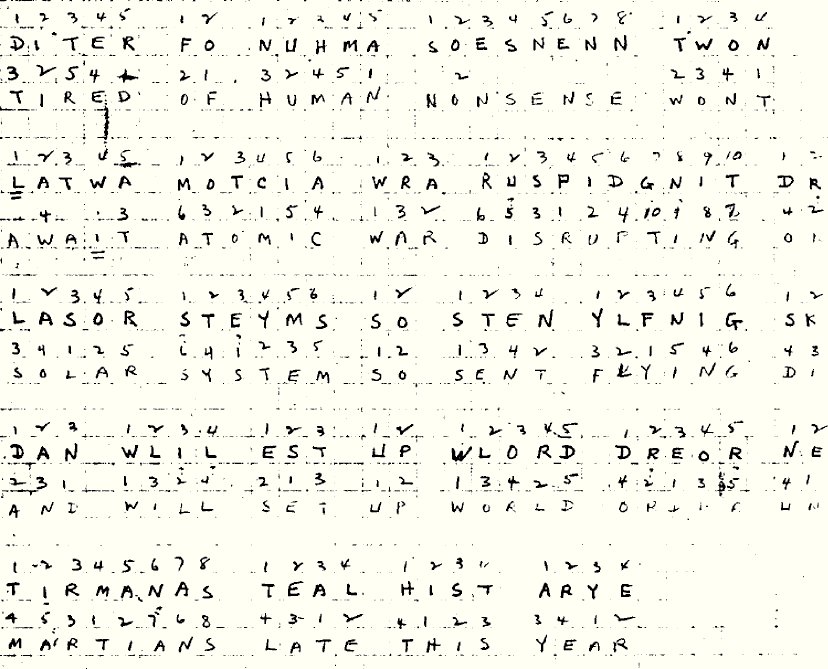 1 2 3 4 5 1 2 1 2 3 4 5 1 2 3 4 5 6 7 8 1 2 3 4
DITER FO NUHMA SOESNENN TWON
3 2 5 4 1 2 1 3 2 4 5 1 2 2 3 4 1
TIRED OF HUMAN NONSENSE WONT
1 2 3 4 5 1 2 3 4 5 6 1 2 3 1 2 3 4 5 6 7 8 9 10 1 2
LATWA MOTCIA WRA RUSPIDGNIT DR
4 1 3 6 3 2 1 5 4 1 3 2 6 5 3 1 2 4 10 9 8 7 4 2
AWAIT ATOMIC WAR DISRUPTING OI
1 2 3 4 5 1 2 3 4 5 6 1 2 1 2 3 4 1 2 3 4 5 6 1 2
LASOR STEYMS SO STEN YLFNIG SK
3 4 1 2 5 1 4 1 2 3 5 1 2 1 3 4 2 3 2 1 5 4 6 4 3
SOLAR SYSTEM SO SENT FLYING DI
1 2 3 1 2 3 4 1 2 3 1 2 1 2 3 4 5 1 2 3 4 5 1 2
DAN WLIL EST UP WLORD DREOR NE
2 3 1 1 3 2 4 2 1 3 1 2 1 3 4 2 5 4 2 1 3 5 4 1
AND WILL SET UP WORLD UN
1 2 3 4 5 6 7 8 1 2 3 4 1 2 3 4 1 2 3 4
TIRMANAS TEAL HIST ARYE
4 5 3 1 2 7 6 8 4 3 1 2 4 1 2 3 3 4 1 2
MARTIANS LATE THIS YEAR